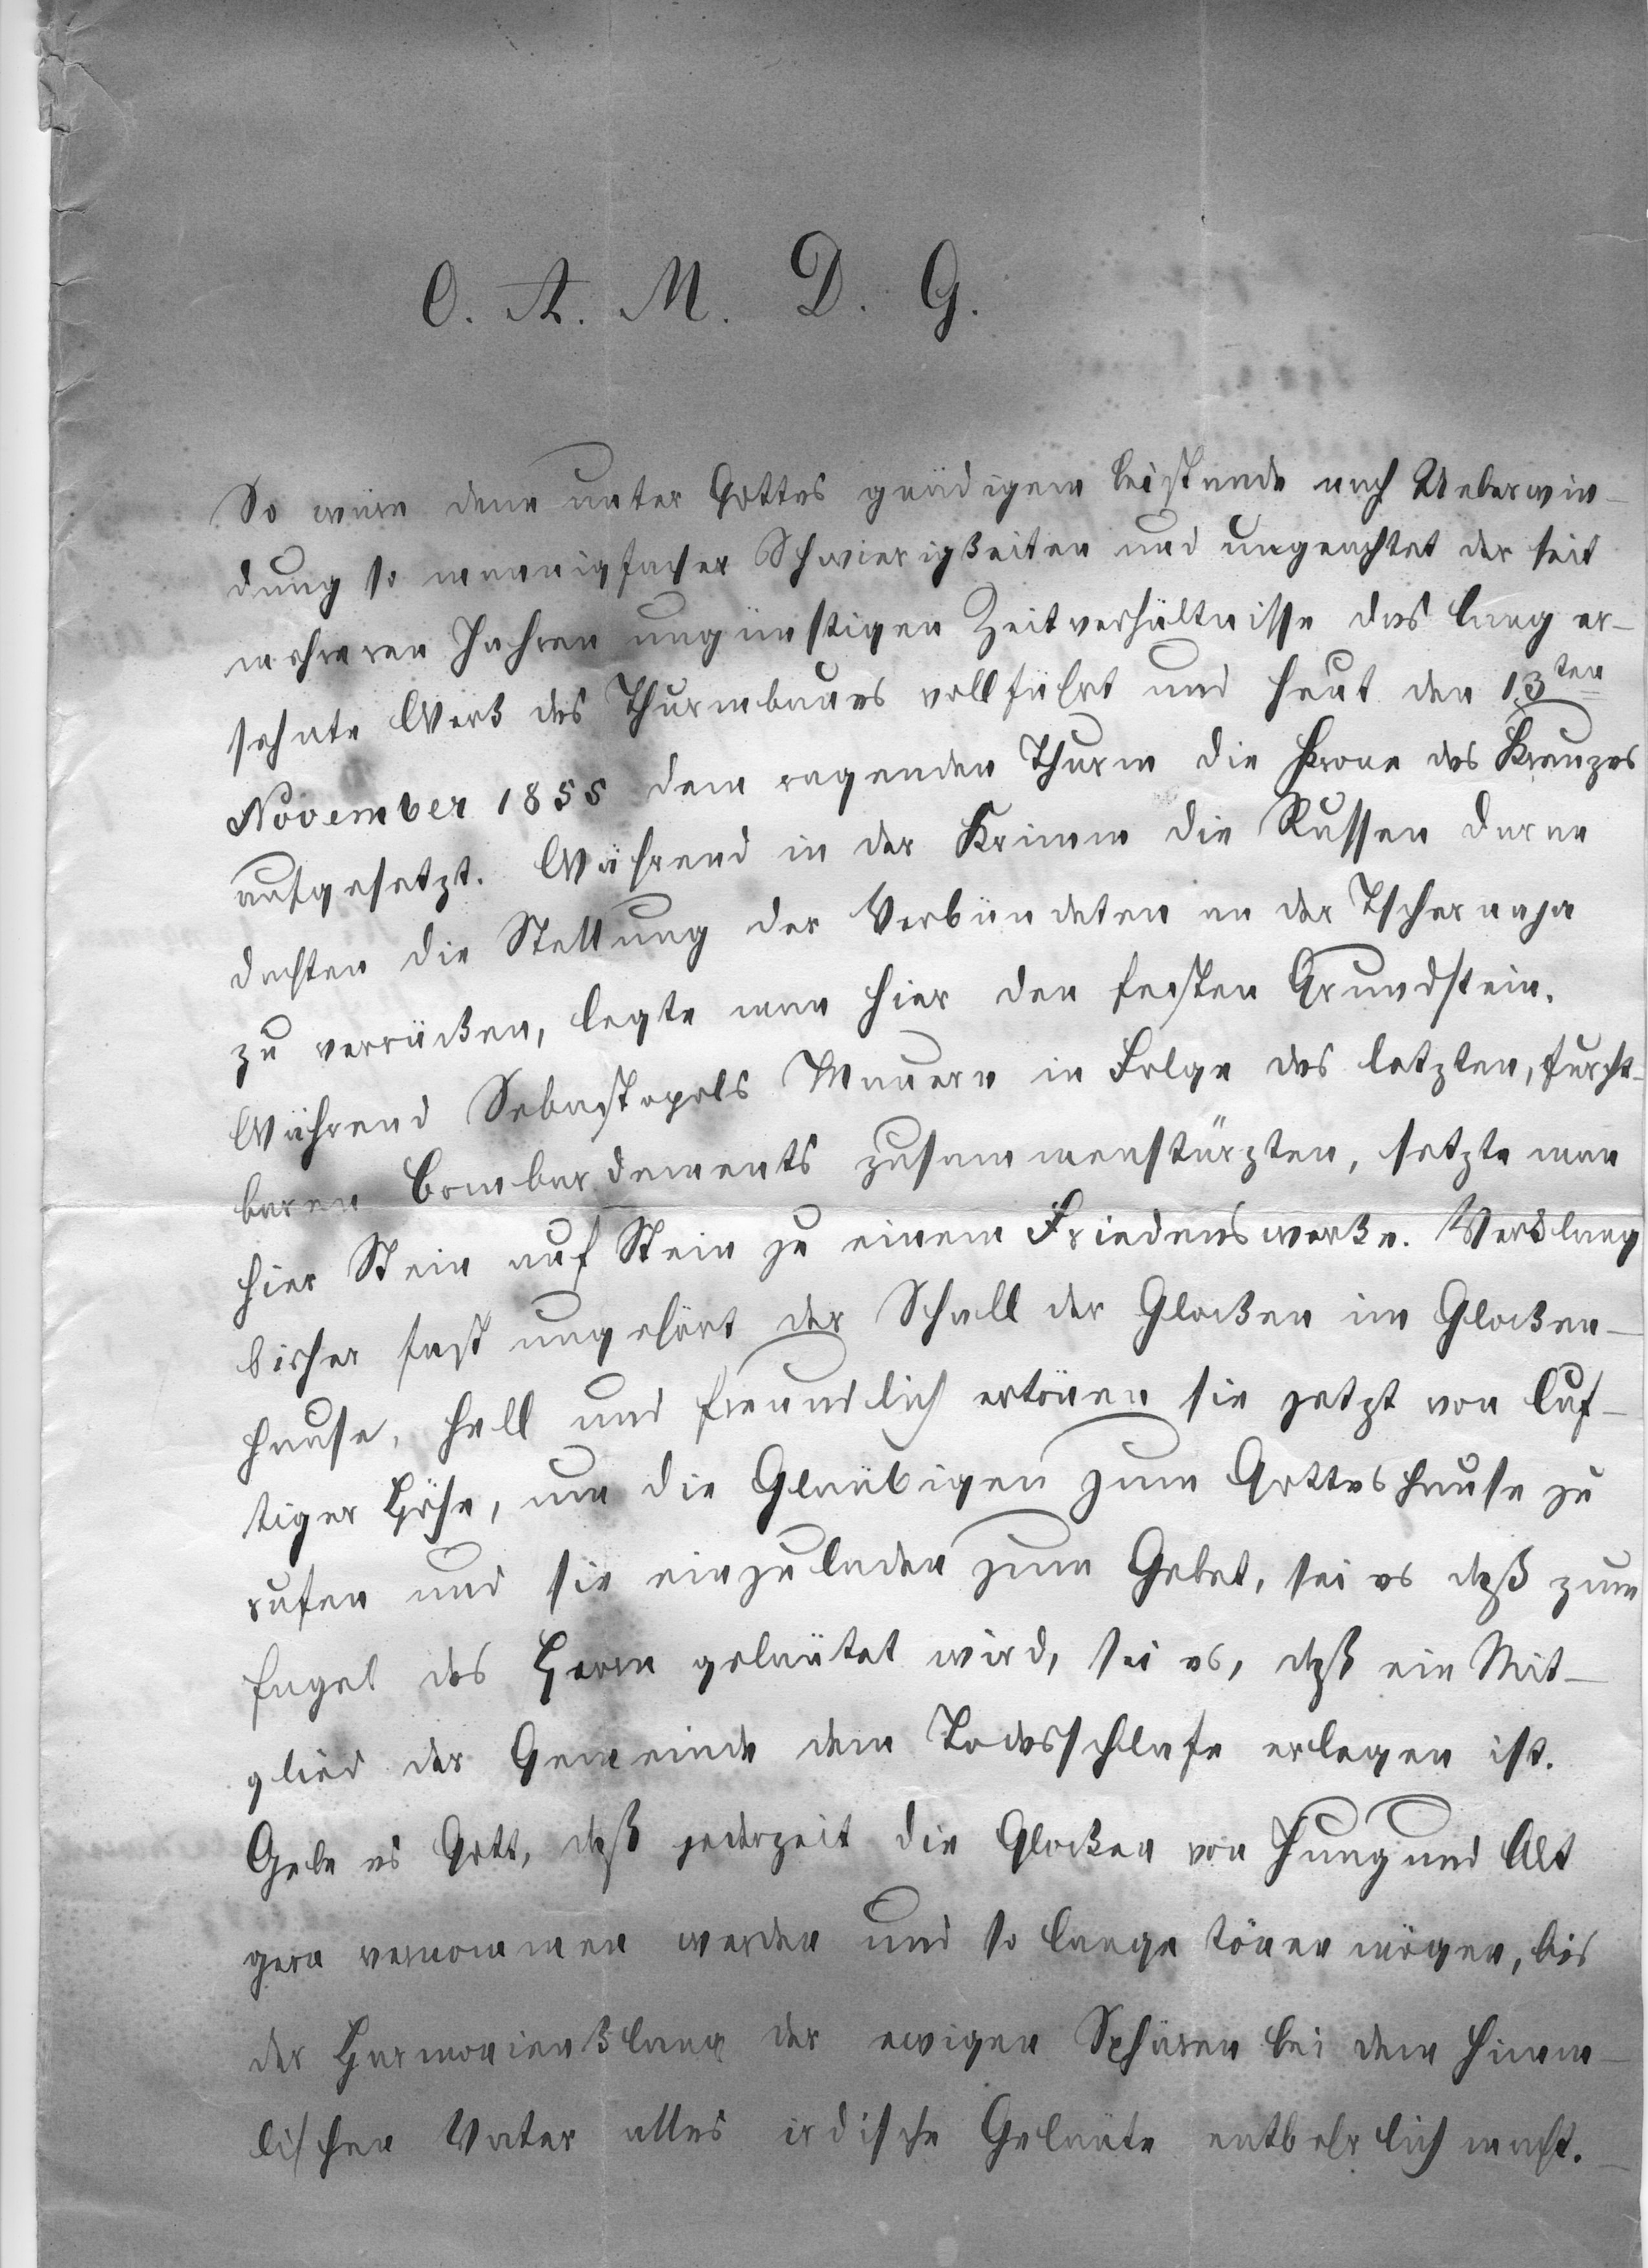 O. A. M. D. G.
So wäre denn unter Gottes gnädigem Beistande nach Ueberwin-
dung so mannigfacher Schwierigkeiten und ungeachtet der seit
mehreren Jahren ungünstigen Zeitverhältnisse das lang er-
sehnte Werk des Thurmbaues vollführt und heut den 13ten
November 1855 dem ragenden Thurm die Krone des Kreuzes
aufgesetzt. Während in der Krimm die Russen daran
dachten die Stellung der Verbündeten an der Tschernaja
zu verrücken, legte man hier den festen Grundstein.
Während Sebastopols Mauern in Folge des letzten, furcht-
baren Bombardements zusammenstürzten, setzte man
hier Stein auf Stein zu einem Friedenswerke. Verklang
bisher fast ungehört der Schall der Glocken im Glocken-
hause, hell und freundlich ertönen sie jetzt von luf-
tiger Höhe, um die Gläubigen zum Gotteshause zu
rufen und sie einzuladen zum Gebet, sei es daß zum
Engel des Herrn geläutet wird, sei es, daß ein Mit-
glied der Gemeinde dem Todesschlafe erlegen ist.
Gebe es Gott, daß jederzeit die Glocken von Jung und Alt
gern vernommen werden und so lange tönen mögen, bis
der Harmonienklang der ewigen Sphären bei dem himm-
lischen Vater alles irdische Geläute entbehrlich macht.